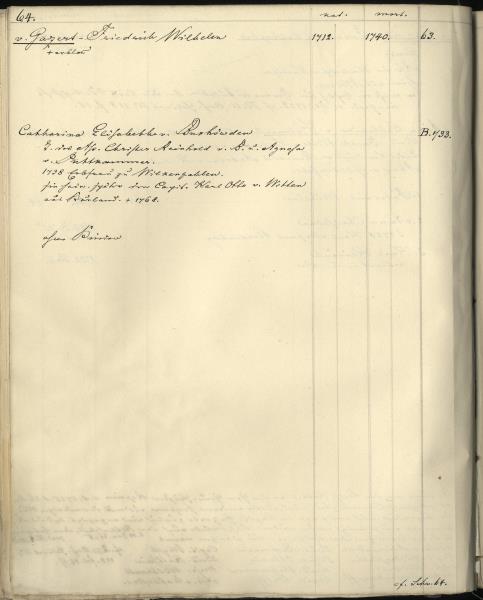 64. nat. mort.
v. Gazert - Friedrich Wilhelm 1712. 1740. 63.
† erblos
Catharina Elisabeth v. Buxhöwden B. 1733.
T. des Ass. Christer Reinhold v. B. u. Agnesa
v. Puttkammer.
1738 Erbfrau zu Wilkenpahlen.
später den Capit. Karl Otto v. Witten
aus Kurland. † 1768.
ohne Kinder
cf. Schw. 64.